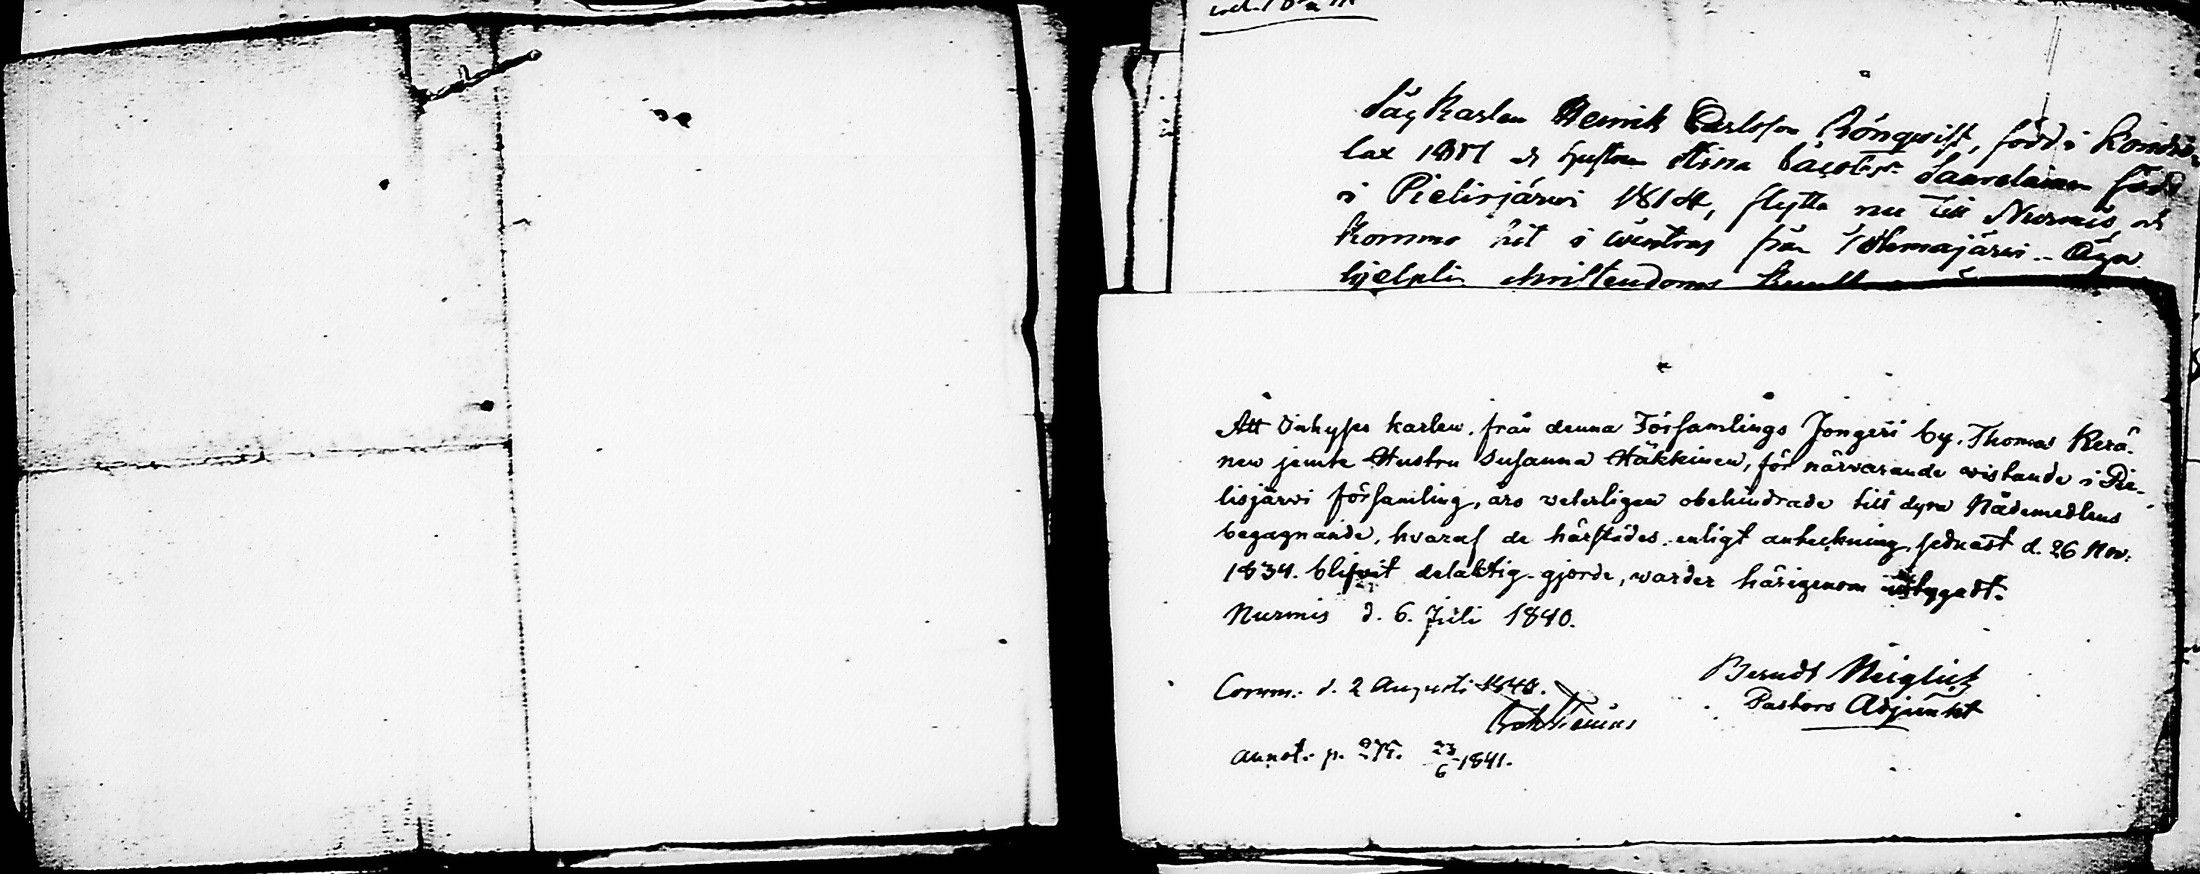 Karlen Henrik Carlsson Rönqvist, född i Kondio-
lax 18 och hustrun Stina Jacobsdr född
i Pielisjärvi 1814, flytta nu till Nurmis, och
kommo hit i wintras från Tohmajärvi. - Äga
hjelplig christendoms kunsk
Att Inhyses karlen från denna Församlings Jongeri by, Thomas Kerä-
nen jemte Hustru Susanna Häkkinen, för närvarande vistande i Pie-
lisjärvi församling, äro veterligen obehindrade till dyra Nådemedlens
begagnande, hvaraf de härstädes, enligt anteckning, sednast d. 26 Nov.
1834. blifvit delaktig gjorde, warder härigenom intygadt.
Nurmis d. 6. Juli 1840.
Berndt
Pastors Adjunkt
Comm. d. 2 Augusti 1840.
annot. p. 275. 23/6 1841.